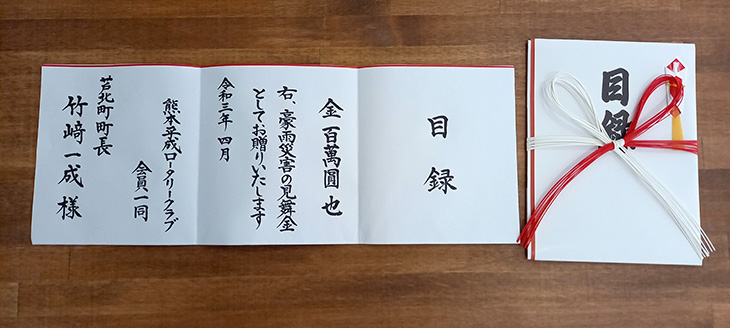 目録
金 百萬圓也
右、豪雨災害の見舞金
としてお贈りいたします
令和三年 四月
熊本平成ロータリークラブ
会員一同
芦北町町長
竹﨑一成 様
目録